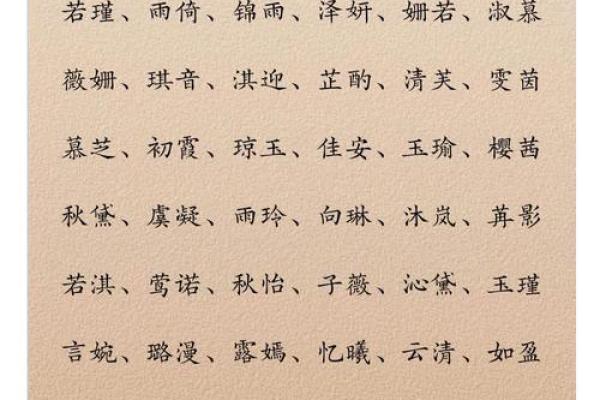 若瑾、雨倚、锦雨、泽妍、姗若、淑慕
薇姗、琪音、淇迎、芷酌、清芙、雯茵
慕芝、初霞、琼玉、佳安、玉瑜、樱茜
秋黛、虞凝、雨玲、向琳、沐岚、苒影
若淇、莺诺、秋怡、子薇、沁黛、玉瑾
言婉、璐漫、露嫣、忆曦、云清、如盈